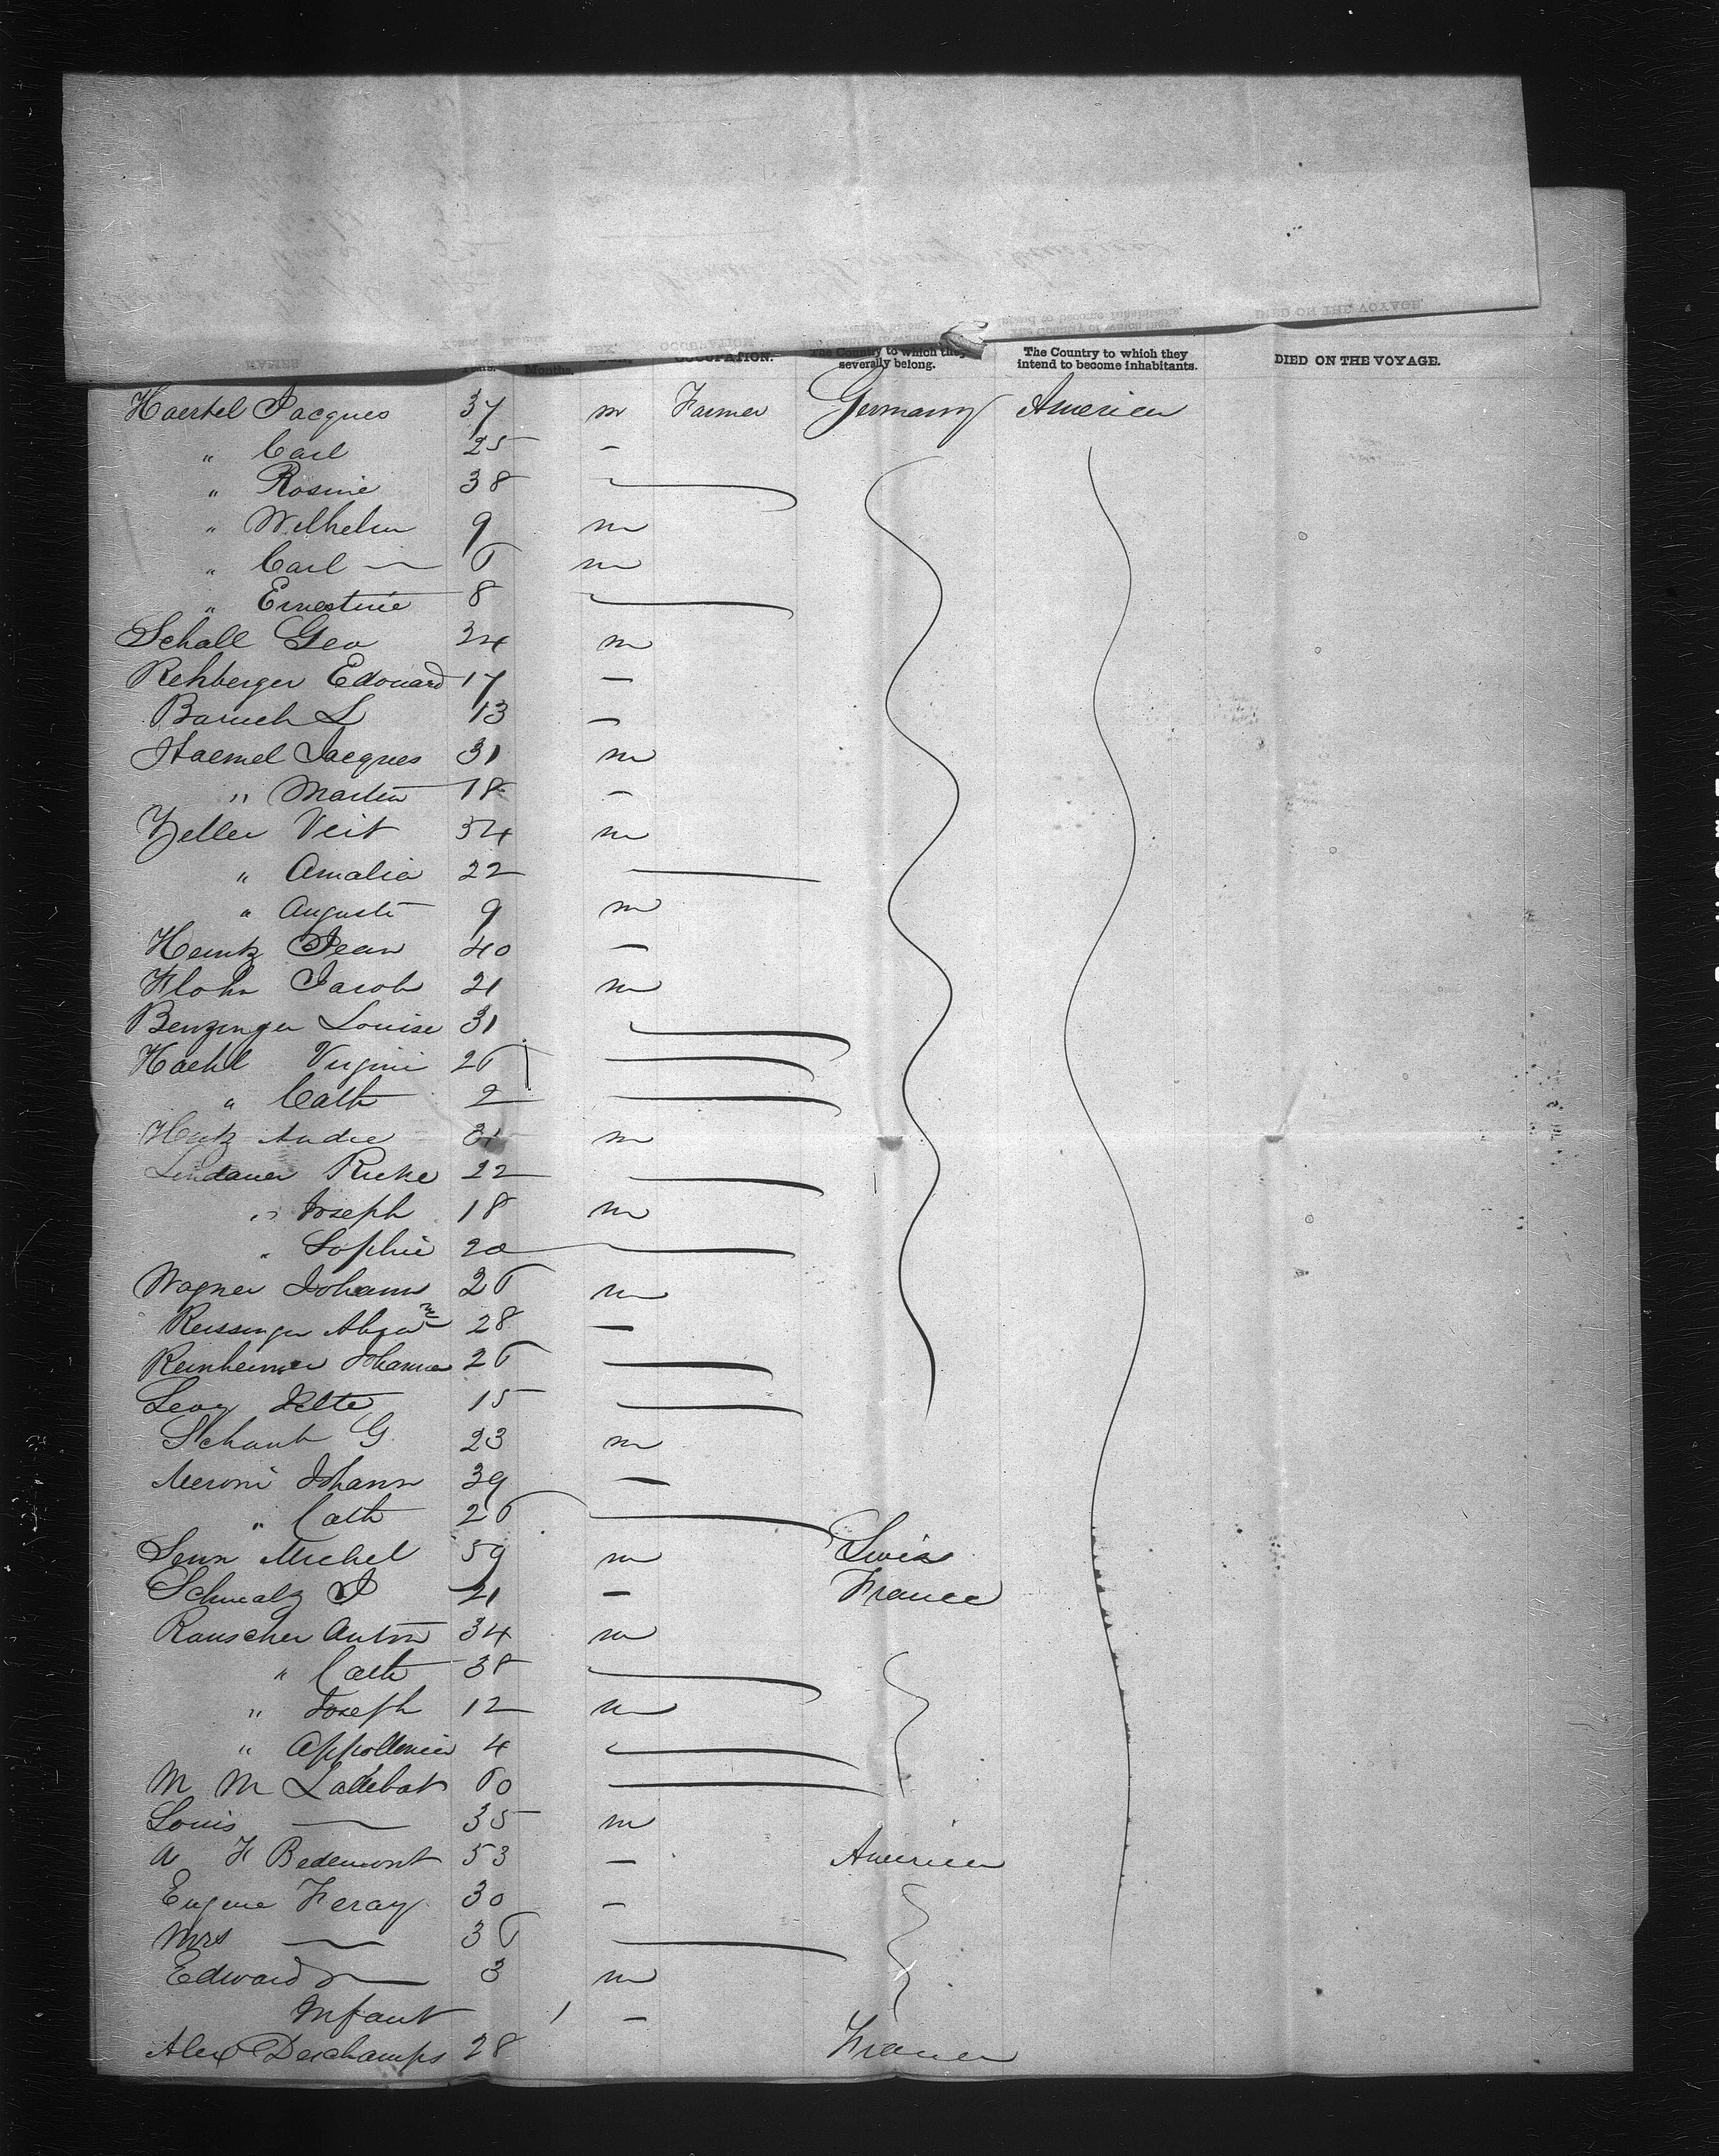 OCCUPATION. The Country to which they severally belong. The Country to which they intend to become inhabitants. DIED ON THE VOYAGE.
NAMES Years. Months.
Haertel Jacques 37 m Farmer Germany America
" Carl 25 -
" Rosine 38
" Wilhelm 9 m
" Carl 6 m
" Ernestine 8
Schall Geo 34 m
Rehberger Edouard 17 -
Baruch L 13 -
Haemel Jacques 31 m
" Martin 18 -
Zeller Veit 34 m
" Amalia 22
" Auguste 9 m
Heintz Jean 40 -
Flohr Jacob 21 m
Benzinger Louise 31
Haehl Virginie 26
" Cath 2
Hertz Andre 31 m
Lindauer Ricke 22
" Joseph 18 m
" Sophie 20
Wagner Johann 26 m
Reissinger Abram 28 -
Reinheimer Johanna 26
Levy Jette 15
Schaub G. 23 m
Meroni Johann 39 -
" Cath 26
Senn Michel 59 m Swiss
Schwalz J 21 - France
Rauscher Anton 34 m
" Cath 38
" Joseph 12 m
" Appollonia 4
M M Ladebat 60
Louis 35 m
A F Bedemont 53 - America
Eugene Feray 30 -
Mrs 36
Edward 3 m
Infant 1 -
Alex Deschamps 28 France